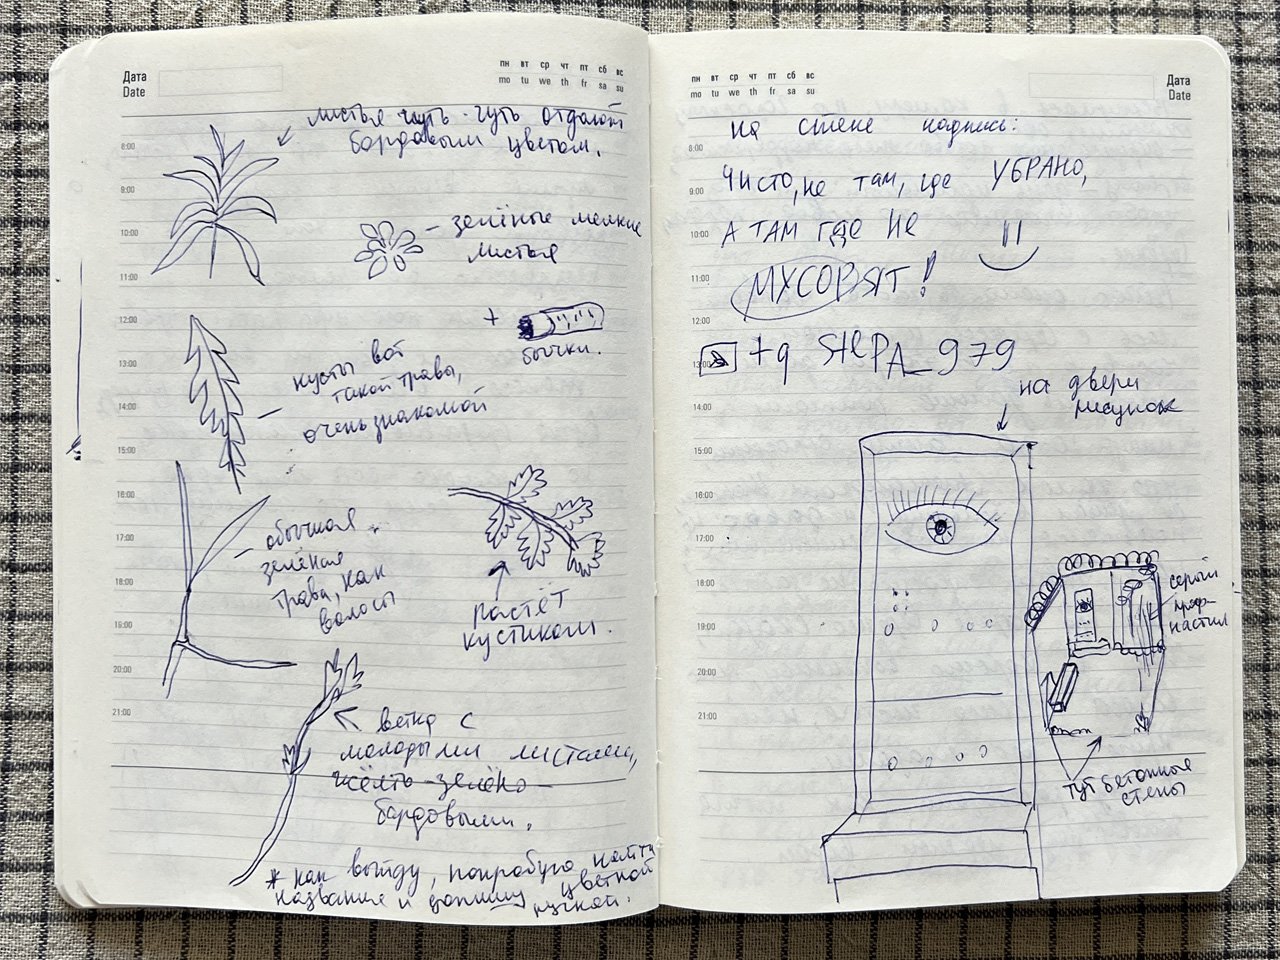 Дата
Date
пн вт ср чт пт сб вс
mo tu we th fr sa su
листья чуть-чуть отдают
бардовым цветом.
8:00
9:00
зелёные мелкие
листья
10:00
11:00
12:00
+
бычки.
кусты вот
такой травы,
очень знакомой
13:00
14:00
15:00
16:00
обычная
зелёная
трава, как
волосы
17:00
18:00
растёт
кустиком.
19:00
20:00
21:00
ветка с
молодыми листьями,
жёлто-зелёно-
бардовыми.
* как выйду, попробую найти
название и допишу цветной
ручкой.
пн вт ср чт пт сб вс
mo tu we th fr sa su
Дата
Date
на стене надпись:
8:00
Чисто, не там, где УБРАНО,
9:00
А ТАМ ГДЕ НЕ
10:00
МУСОРЯТ!
11:00
12:00
13:00
+q StePA_979
на двери
рисунок
14:00
15:00
16:00
17:00
18:00
серый
проф-
настил
19:00
20:00
21:00
тут бетонные
стены